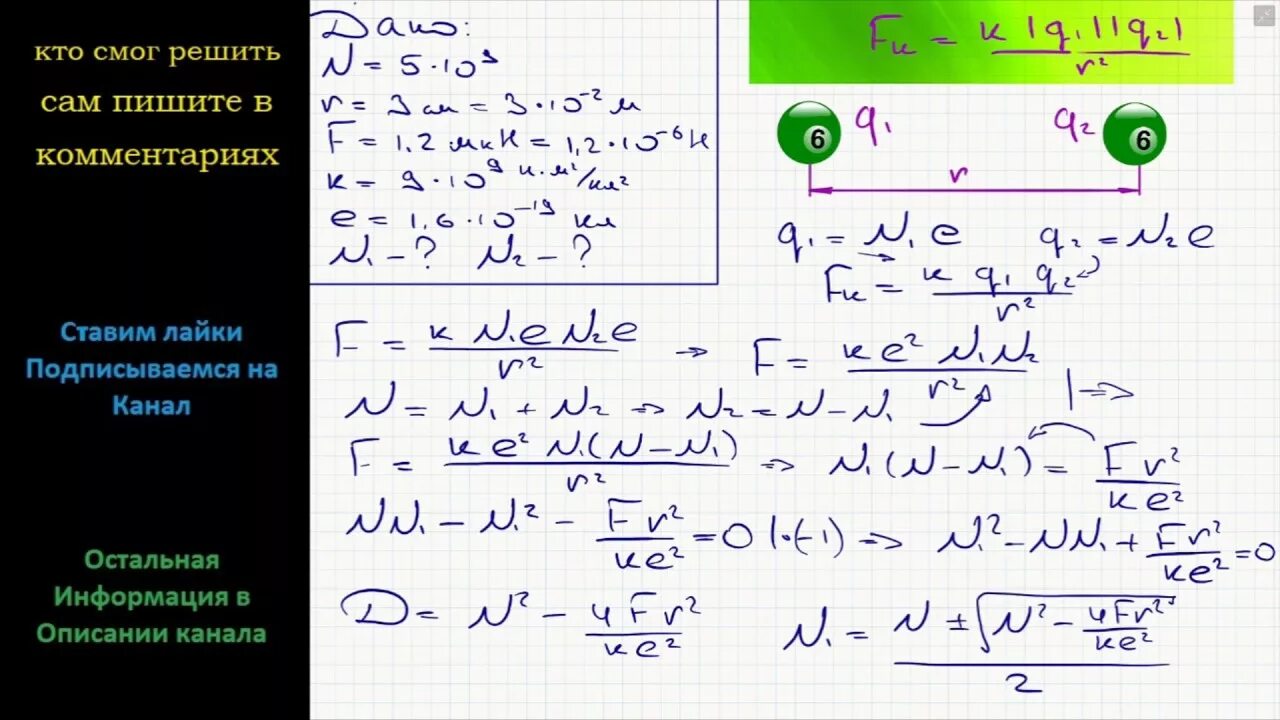 кто смог решить
сам пишите в
комментариях
Ставим лайки
Подписываемся на
Канал
Остальная
Информация в
Описании канала
Дано:
N = 5·10⁹
r = 3 см = 3·10⁻² м
F = 1,2 мкН = 1,2·10⁻⁶ Н
к = 9·10⁹ н·м²/кл²
e = 1,6·10⁻¹⁹ кл
N₁ – ? N₂ – ?
Fк = к |q₁||q₂| / r²
6 q₁ q₂ 6
r
q₁ = N₁e q₂ = N₂e
Fк = к q₁ q₂ / r²
F = к N₁e N₂e / r² → F = кe² N₁N₂ / r²
N = N₁ + N₂ ⇒ N₂ = N – N₁ | ⇒
F = к e² N₁(N – N₁) / r² ⇒ N₁(N – N₁) = Fr² / кe²
NN₁ – N₁² – Fr² / кe² = 0 |·(–1) ⇒ N₁² – NN₁ + Fr² / кe² = 0
Д = N² – 4Fr² / кe² N₁ = (N ± √(N² – 4Fr² / кe²)) / 2